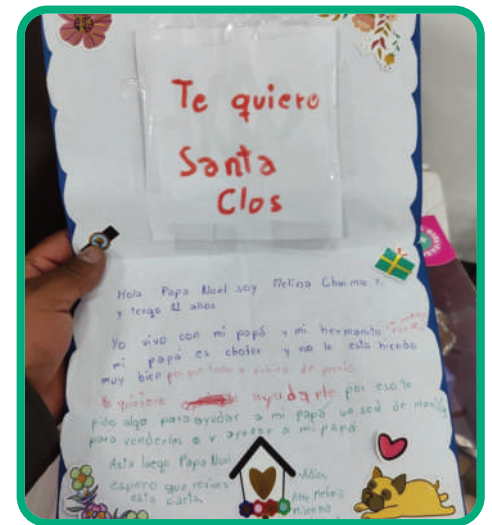 Te quiero
Santa
Clos
Hola Papa Noel soy Melina
y tengo años
Yo vivo con mi papá y mi hermanito
mi papá es chofer y no le esta hiendo
muy bien porque todo a subido de precio
quisiera ayudarle por eso te
pido algo para ayudar a mi papá
para venderles o y ayudar a mi papá
Asta luego Papa Noel
espero que recives
esta carta
Adios
Att: Melina